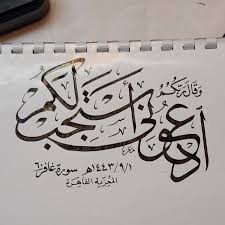 وَقَالَ رَبُّكُمُ
ادْعُونِي أَسْتَجِبْ لَكُمْ
١/٩/١٤٤٣هـ سورة غافر ٦٠
المعزية القاهرة